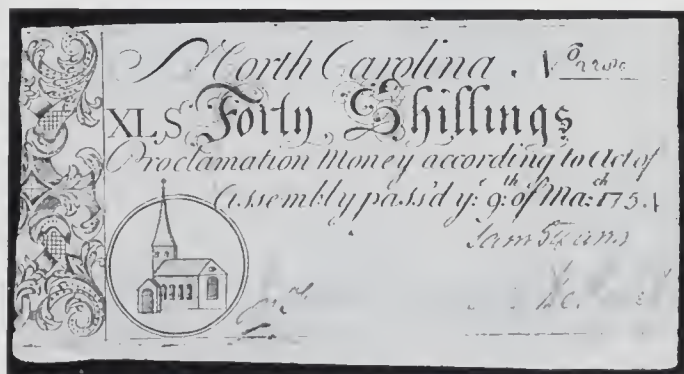 North Carolina. No
XLS Forty Shillings
Proclamation Money according to Act of
Assembly pass'd ye: 9th of Mar:ch 1754